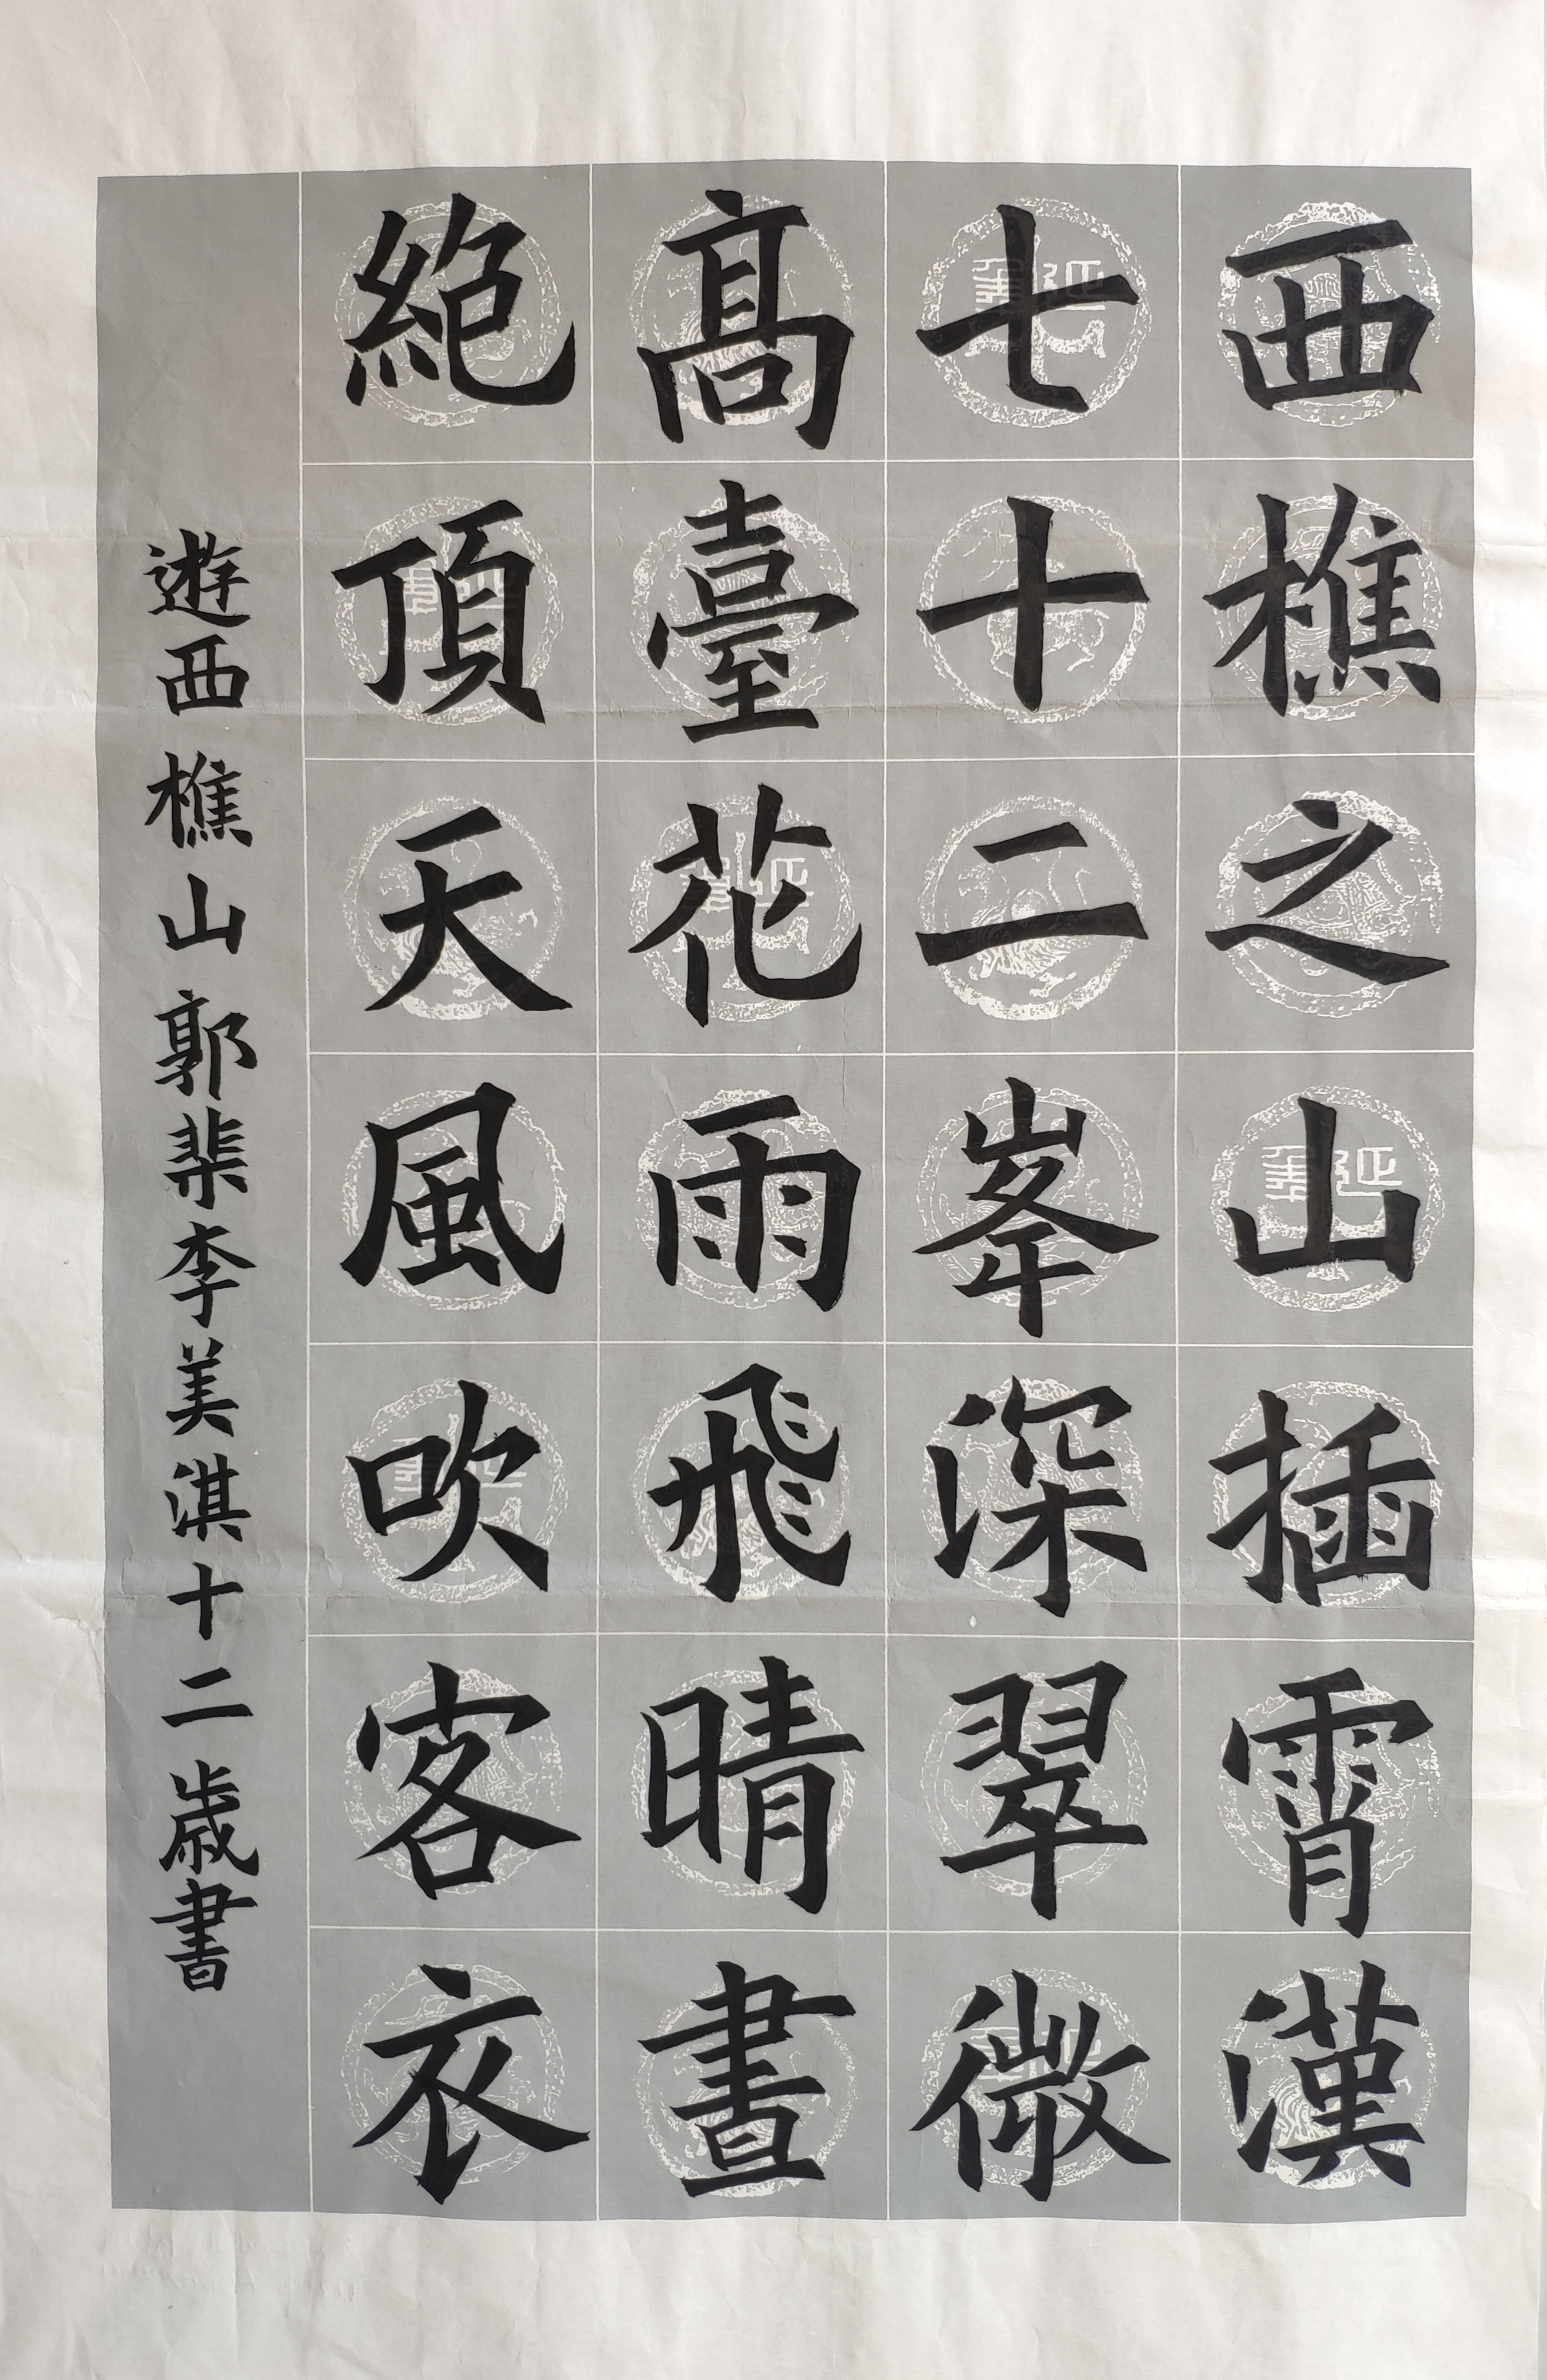 西樵之山插霄漢
七十二峯深翠微
高臺花雨飛晴晝
絕頂天風吹客衣
遊西樵山郭棐李美淇十二歲書